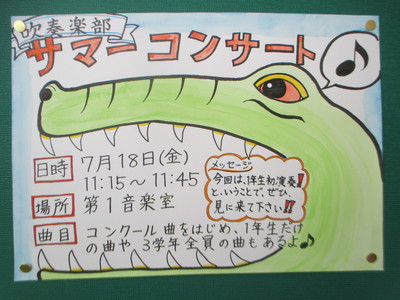 吹奏楽部
サマーコンサート
日時 7月18日(金)
11:15～11:45
場所 第1音楽室
メッセージ
今回は、1年生初演奏!
と、いうことで、ぜひ、
見に来て下さい!!
曲目 コンクール曲をはじめ、1年生だけ
の曲や 3学年全員の曲もあるよ♪